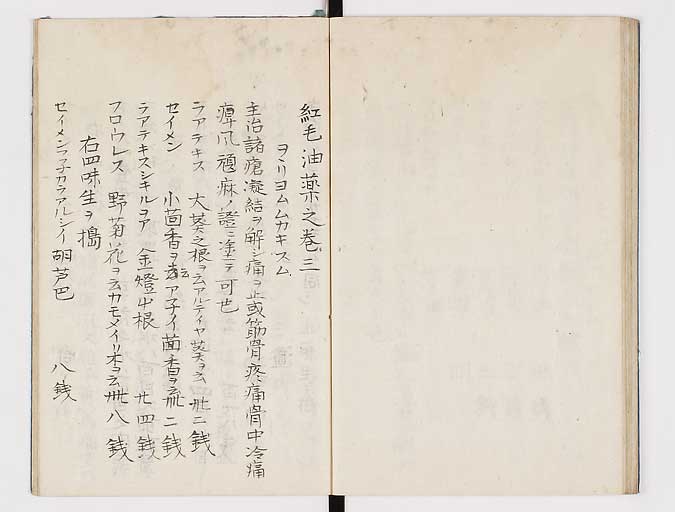 紅毛油薬之巻三
ヲヽリヨムムカキスム
主治諸瘡凝結ヲ解シ痛ヲ止或筋骨疼痛骨中冷痛
痺風頑麻ノ證ニ塗テ可也
ラアテキス 大葵之根ヲ云アルテイヤ葵ヲ云 卅二銭
セイメン 小茴香ヲ云アネイイ茴香ヲ云 卅二銭
ラアテキスシキルヲア 金燈屮根 廿四銭
フロウレス 野菊花ヲ云カモメイリ木ヲ云 卅八銭
右四味生ヲ搗
胡芦巴 八銭